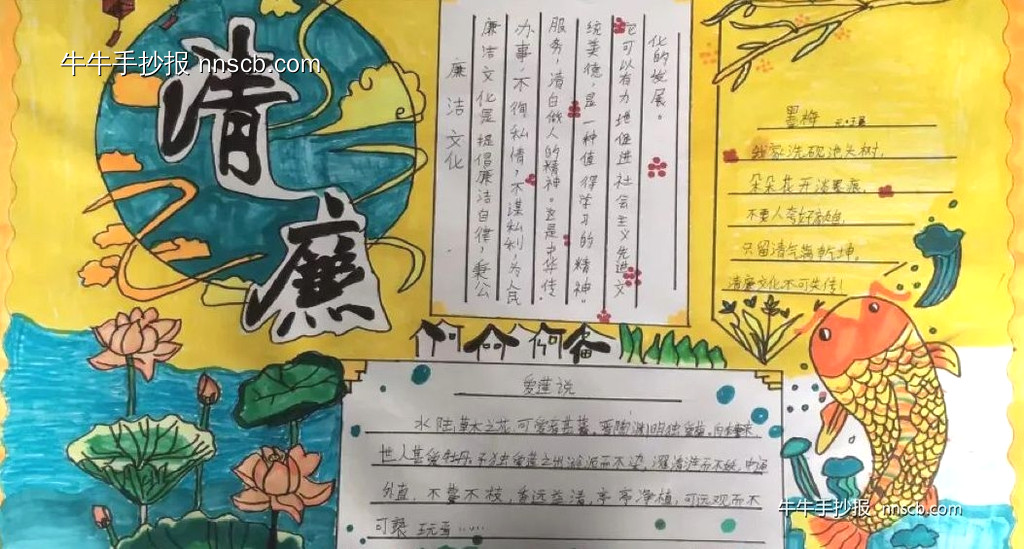 牛牛手抄报 nnscb.com
清廉
廉洁文化
廉洁文化是提倡廉洁自律，秉公
办事，不徇私情，不谋私利，为人民
服务，清白做人的精神。这是中华传
统美德，是一种值得学习的精神。
它可以有力地促进社会主义先进文
化的发展。
墨梅 元·王冕
我家洗砚池头树，
朵朵花开淡墨痕，
不要人夸好颜色，
只留清气满乾坤。
清廉文化不可失传！
爱莲说
水陆草木之花，可爱者甚蕃。晋陶渊明独爱菊。自李唐来，
世人甚爱牡丹。予独爱莲之出淤泥而不染，濯清涟而不妖，中通
外直，不蔓不枝，香远益清，亭亭净植，可远观而不
可亵玩焉……
牛牛手抄报 nnscb.com